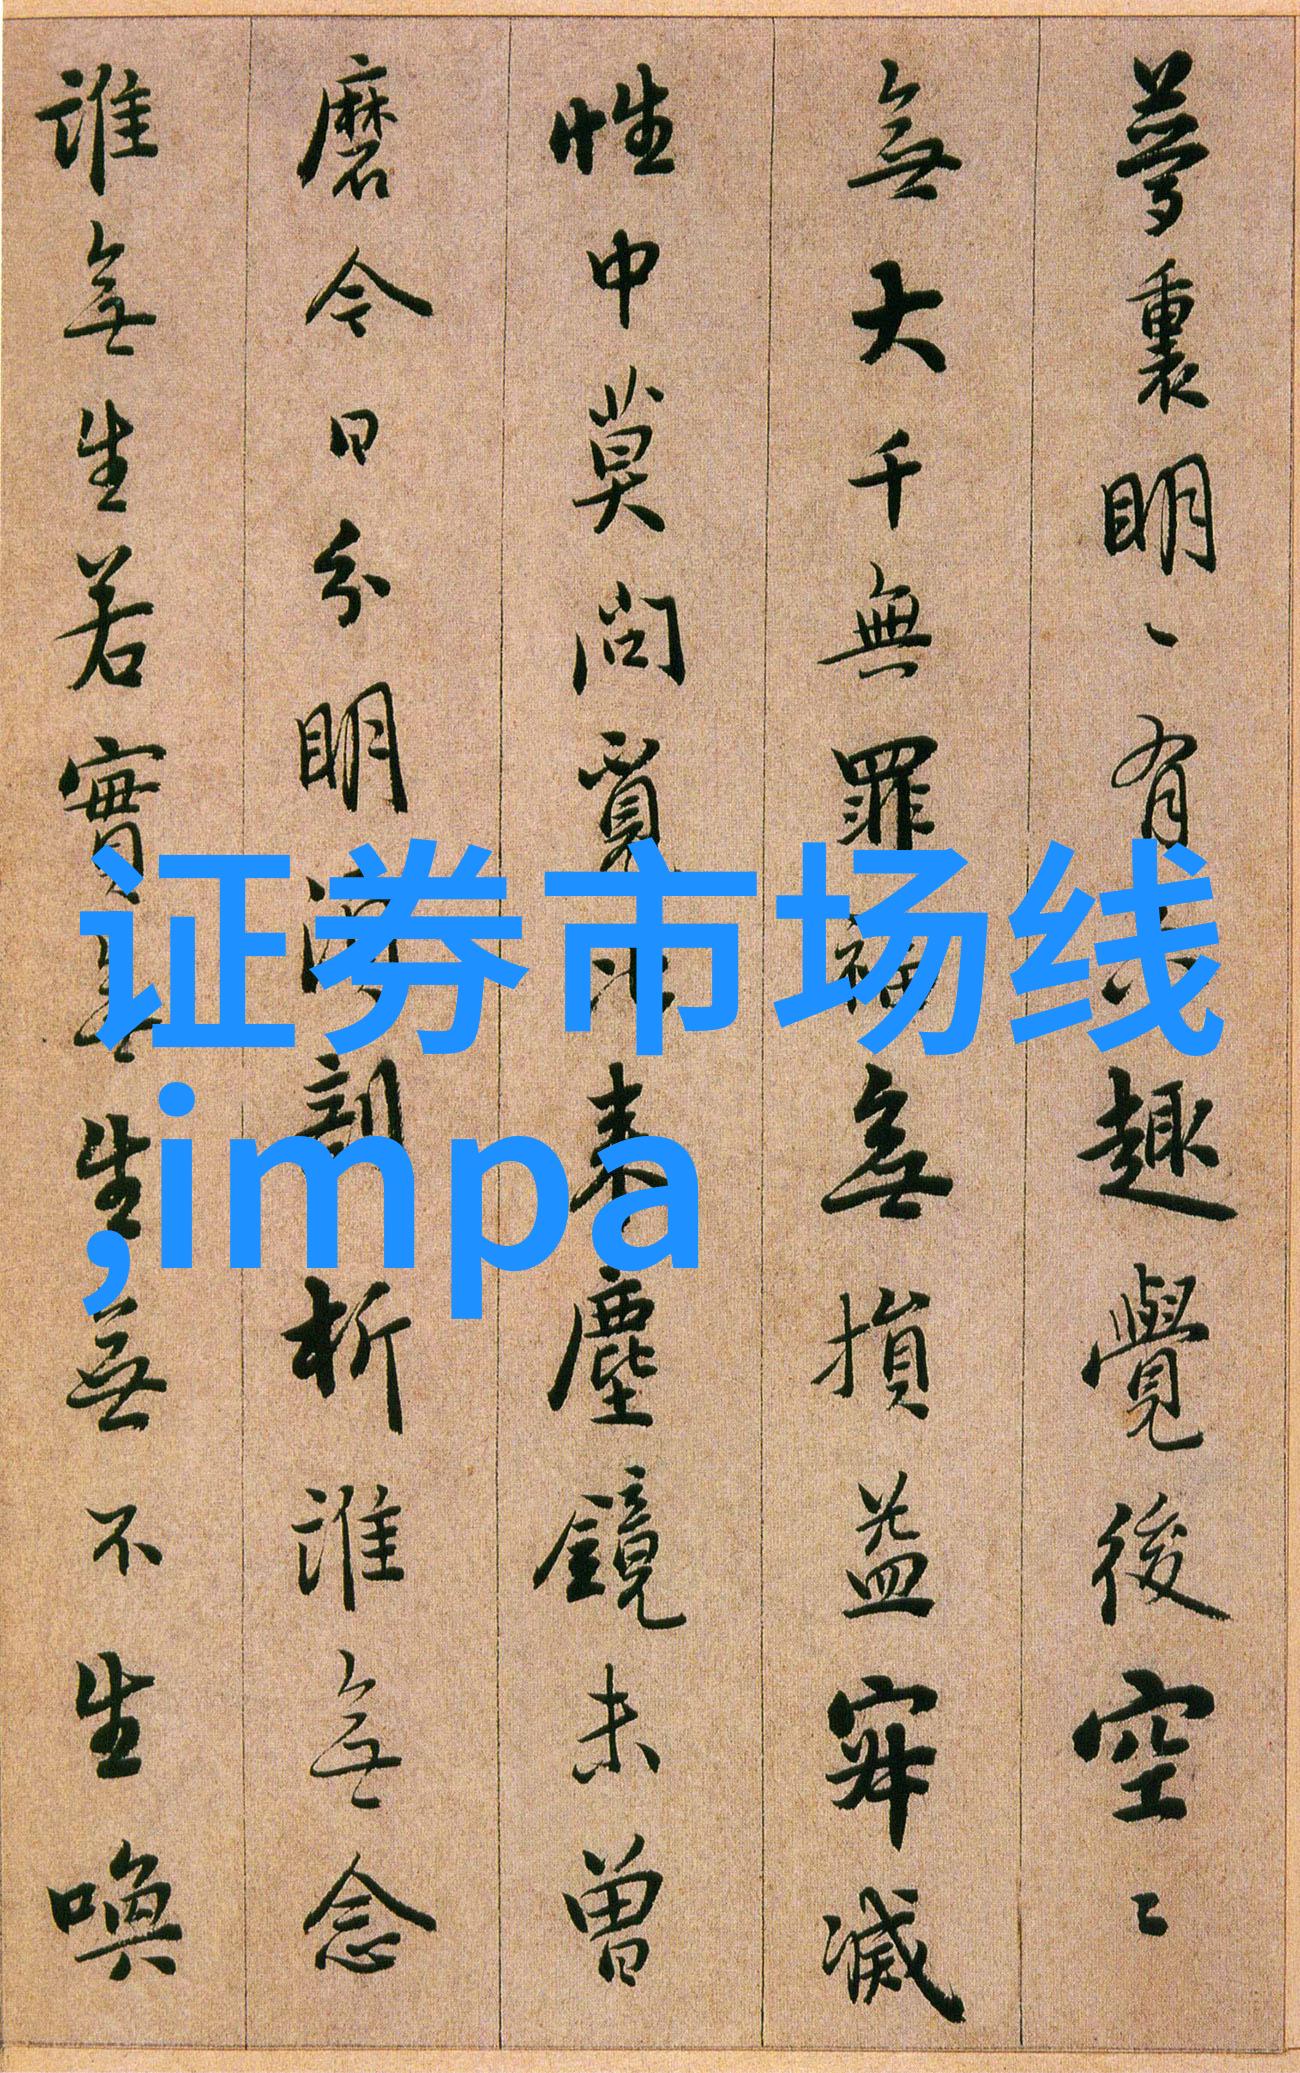 夢裏明〻有六趣覺後空〻
無大千無罪福無損益寂滅
性中莫問覓比來塵鏡未曾
磨今日分明須剖析誰無念
誰無生若實無生無不生喚
证券市场线
,impa